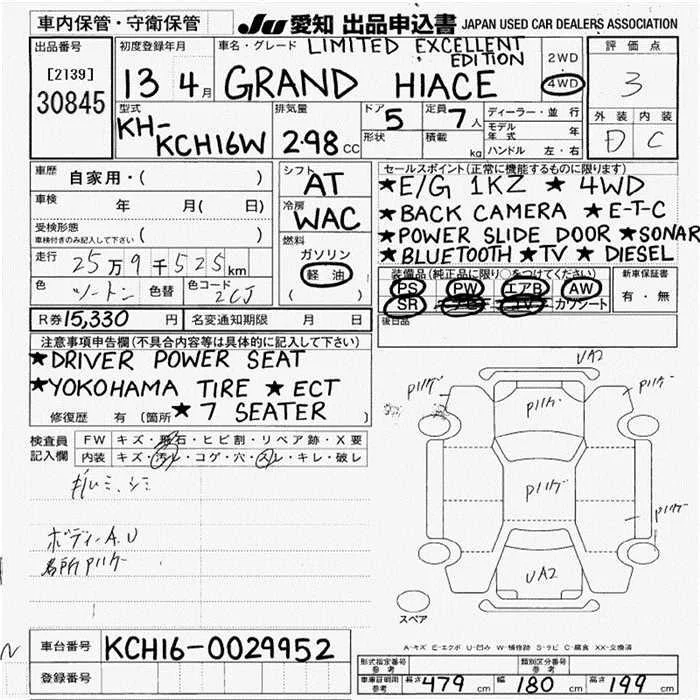 車内保管・守衛保管
JU 愛知 出品申込書 JAPAN USED CAR DEALERS ASSOCIATION
出品番号
[2139]
30845
初度登録年月
13 4月
車名・グレード LIMITED EXCELLENT EDITION
GRAND HIACE
2WD
4WD
評価点
3
外装 内装
D C
型式
KH-KCH16W
排気量
2.98 CC
ドア 5
形状
定員 7人
積載 kg
ディーラー・並行
モデル年式 年
ハンドル 左・右
車歴 自家用・( )
車検 年 月( 日)
受検形態
車検付きのみ記入して下さい ( )
走行 25万9千525km
色 ツートン 色替 色コード 2CJ
R券 15,330 円 名変通知期限 月 日
シフト
AT
冷房
WAC
燃料
ガソリン
軽油
( )
セールスポイント(正常に機能するものに限ります)
★E/G 1KZ ★ 4WD
★BACK CAMERA ★E-T-C
★POWER SLIDE DOOR ★SONAR
★BLUETOOTH ★TV ★ DIESEL
装備品(純正品に限り○をつけてください)
PS PW エアB AW
SR ナビ TV カワシート
新車保証書
有・無
後日品
注意事項申告欄(不具合内容等は具体的に記入して下さい)
★DRIVER POWER SEAT
★YOKOHAMA TIRE ★ ECT
★ 7 SEATER
修復歴 有 [箇所
検査員記入欄
FW キズ・飛石・ヒビ割・リペア跡・X要
内装 キズ・汚レ・コゲ・穴・スレ・キレ・破レ
キルミ、シミ
ボディーA.U
各所Pハゲ
UA2
Pハゲ
Pハゲ
Pハゲ
Pハゲ
Pハゲ
UA2
スペア
A-キズ E-エクボ U-凹み W-補修跡 S-サビ C-腐食 XX-交換済
車台番号 KCH16-0029952
登録番号
形式指定番号 参考
類別区分番号 参考
車庫証明用 参考 長さ 479 cm 幅 180 cm 高さ 199 cm